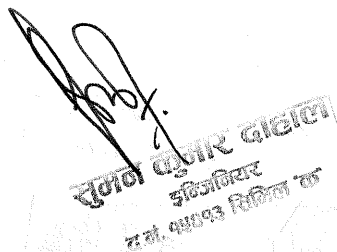 सुमन कुमार दाहाल
इन्जिनियर
न.नं. १५०१३ सिभिल "क"